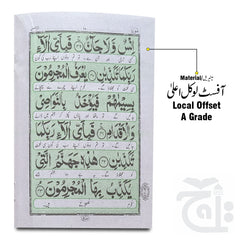 اِنْسٌ وَّلَا جَآنٌّ ۚ فَبِاَیِّ اٰلَآءِ
رَبِّكُمَا تُكَذِّبٰنِ یُعْرَفُ الْمُجْرِمُوْنَ
بِسِیْمٰهُمْ فَیُؤْخَذُ بِالنَّوَاصِیْ
وَالْاَقْدَامِ ۚ فَبِاَیِّ اٰلَآءِ رَبِّكُمَا
تُكَذِّبٰنِ هٰذِهٖ جَهَنَّمُ الَّتِیْ
یُكَذِّبُ بِهَا الْمُجْرِمُوْنَ
Material
آفسٹ لوکل اعلیٰ
Local Offset
A Grade